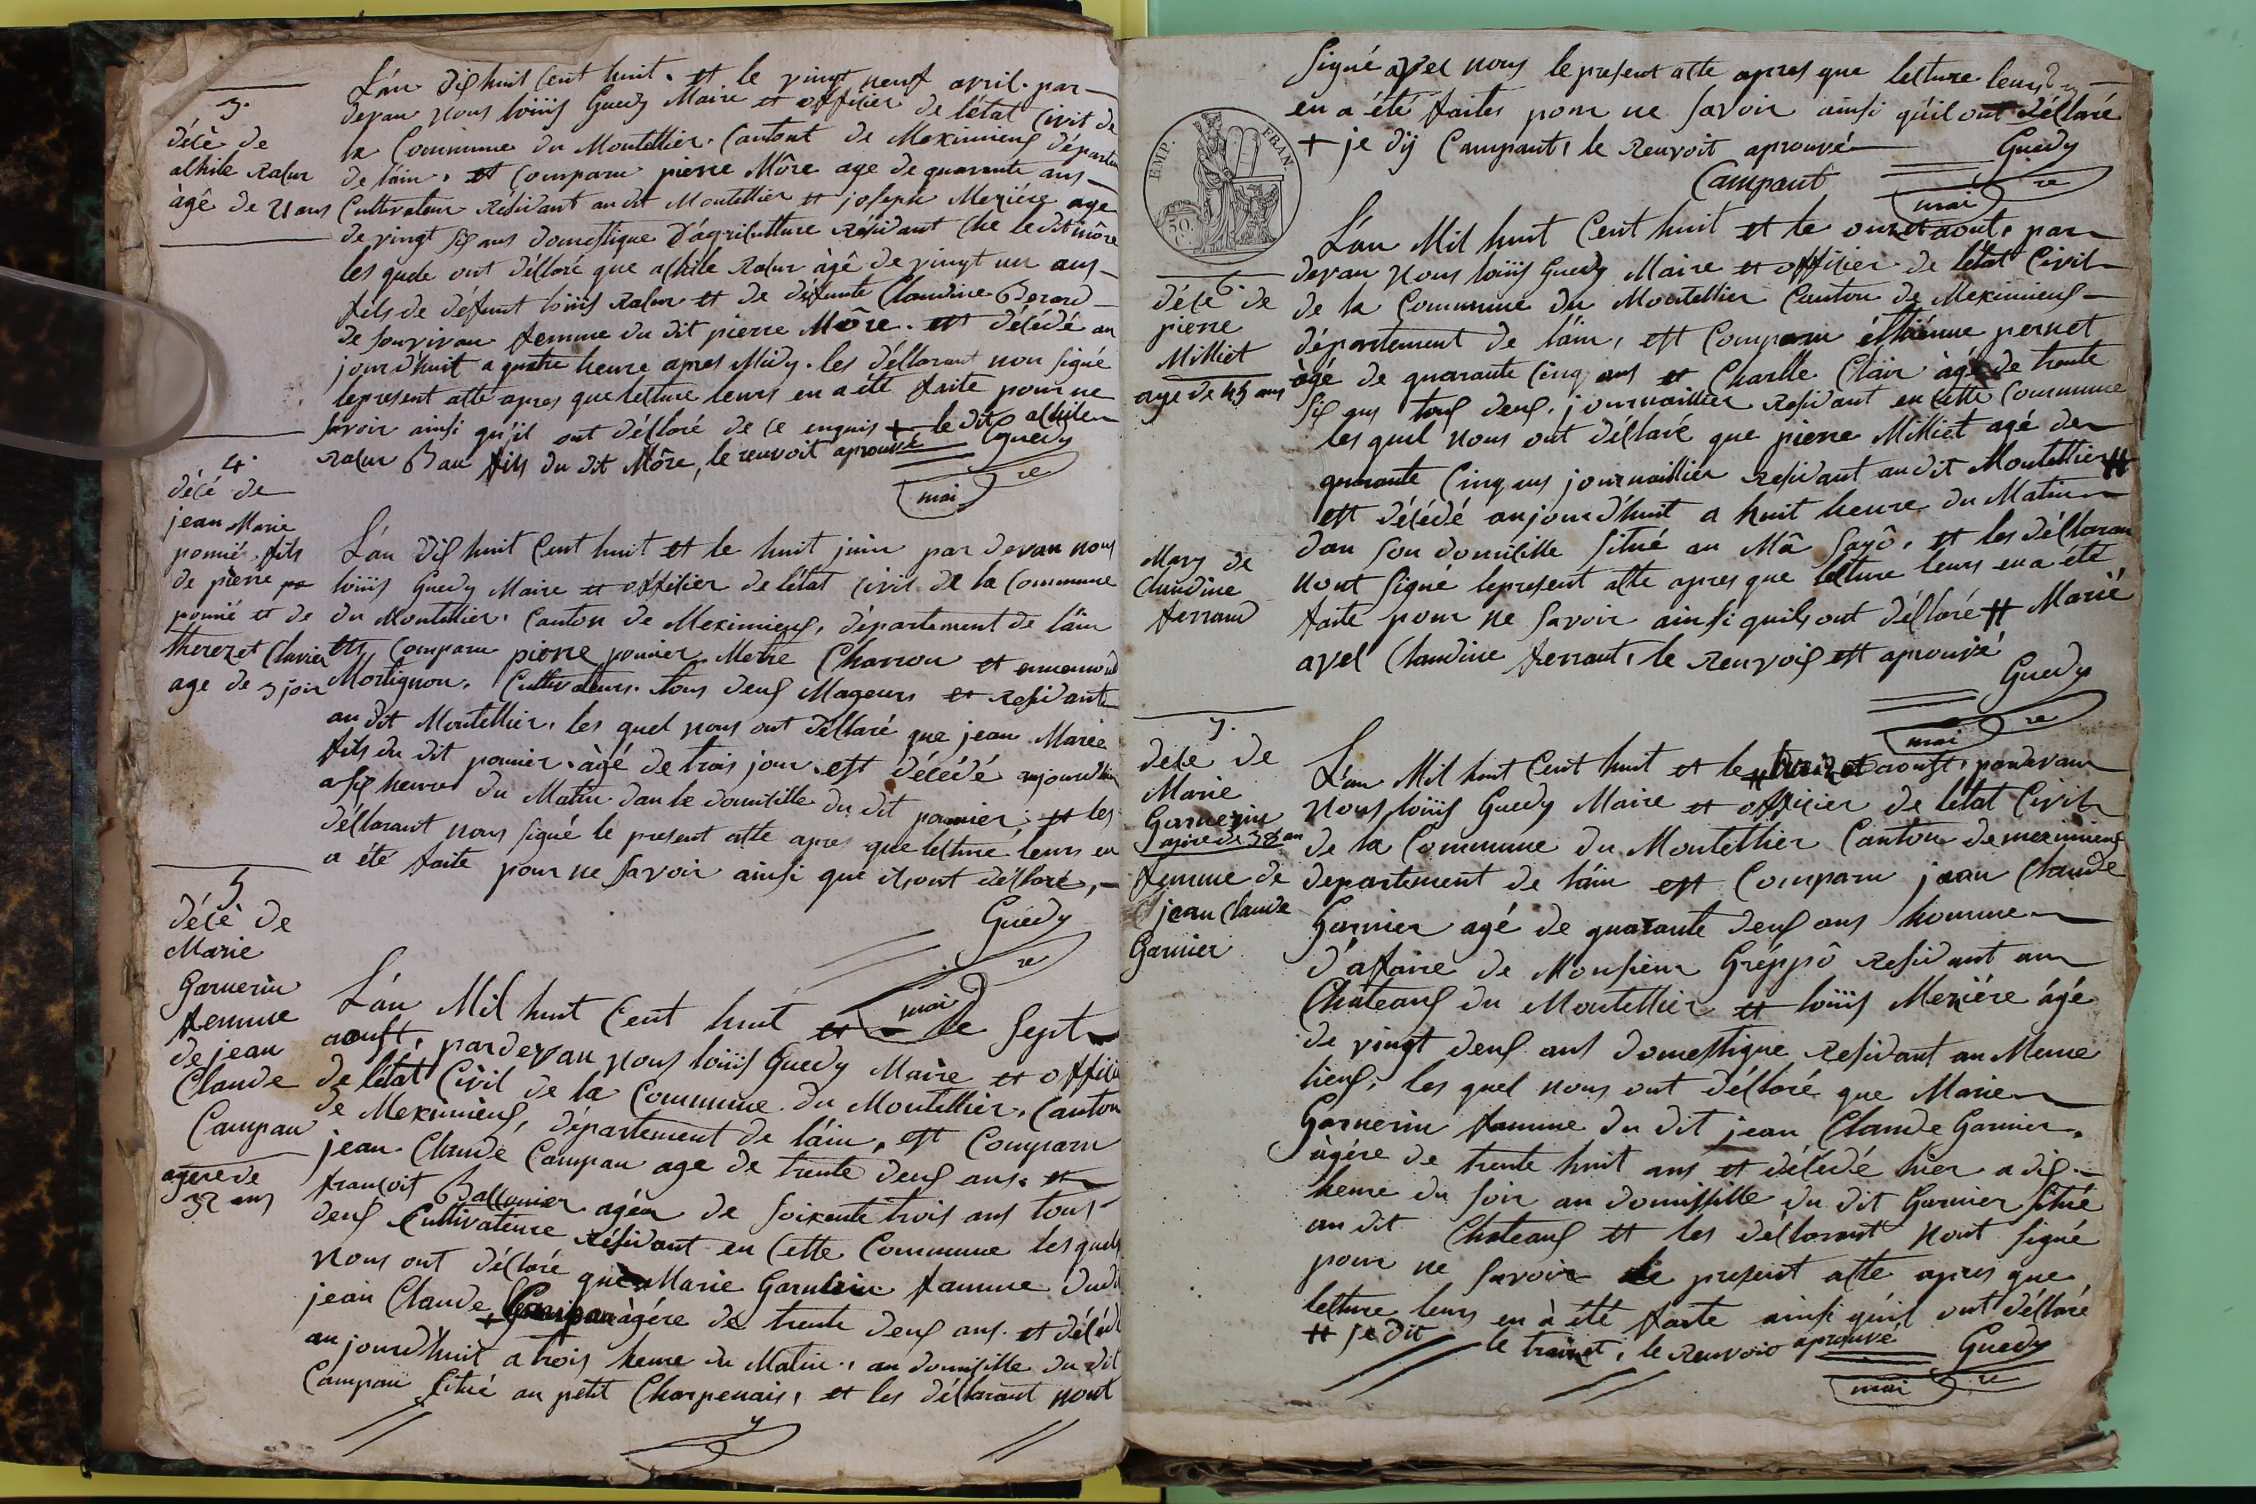 3.
décè de
alhile Ratur
àgê de 21 ans
L'án dixhuit Cent huit. et le vingt neuf avril. par
devan nous loüis Guedy Maire et officier de l'état Civil de
la Commune du Montellier. Cantont de Meximieux départem
de láin. est comparu pierre Môre age de quarante ans
Cultivateur Résidant au dit Montellier et joseph Meziére age
de vingt six ans domestique D'agriculture résidant Ché le dit môre
les quele ont décloré que alhile Ratur àgê de vingt un ans
fils de défunt loüis Ratur et de défunte Claudine Berard
de sonvivan femme du dit pierre Môre. est décédé au
jourd'huit a quatre heure apres Midy. les décllorant non signé
le present atte apres que letture leurs en a été faite pour ne
savoir ainsi qu'il ont décloré de ce enquis + le dit alhile
Ratur Bau fils du dit Môre, le renvoit aprouvé
Guedy
maire
4.
décé de
jean Marie
ponnié fils
de pierre po
ponnié et de
therezet Clavier
age de 3 joir
L'án dix huit Cent huit et le huit juin par devan nous
loüis Guedy Maire et officier de l'état civil de la Commune
du Montellier. Canton de Meximieux, département de láin
est Comparu pierre ponnier Metre Charron et ennemond
Mortignon. Cultivateurs. tous deux Mageurs et residant
au dit Montellier. les quel nous ont décllaré que jean Marie
fils du dit ponnier. àgé de trois jour est décédé aujourdhui
a six heures du Matin dan le domicille du dit ponnier et les
décllorant nous signé le present atte apres que letture leurs en
a été faite pour ne savoir ainsi que ilsont décloré,
Guedy
maire
5
décè de
Marie
Garnerin
femme
de jean
Claude
Campan
agére de
32 ans
L'án Mil huit Cent huit et le sept
aoust, pardevan nous loüis Guedy Maire et officie
de l'état Civil de la Commune du Montellier. Canton
de Meximieux, département de láin, est Comparu
jean Claude Campan age de trente deux ans. et
françoit Ballonier agéer de soixente trois ans tous
deux Cultivateure résidant en Cette Commune les quels
nous ont décloré que Marie Garnerin famme dudi
jean Claude + Campan àgére de trente deux ans. et décéd
au jourd'huit a trois heure du Matin. au domicille du dit
Campan sitüé au petit Charpenais, et les décllarant nont
signé avec nous le present atte apres que letture leurs
en a été faites pour ne savoir ainsi qu'il ont décloré
+ je dij Campant, le renvoit aprouvé
Guedy
Campant
maire
EMP. FRAN.
50. C.
6.
décé de
pierre
Milliet
age de 45 ans
Mary de
Claudine
ferraud
L'án Mil huit Cent huit et le onze aout. par
devan nous loüis Guedy Maire et officier de l'état Civil
de la Commune du Montellier Canton de Meximieux
département de láin, est Comparu éthiénne pernet
àgé de quarante Cinq ans et Charlle Cláir àgé de trante
six ans tous deux. journaillier residant en Cette Commune
les quel nous ont décllaré que pierre Milliet agé de
quarante Cinq ans journaillier residant au dit Montellier #
est décédé aujourd'huit a huit heure du Matin
dan son domicille sitüé au Mâ Sayô. et les décllaran
nont signé lepresent atte apres que letture leurs en a été
faite pour ne savoir ainsi quils ont décloré # Marié
avec Claudine ferrant. le renvois est aprouvé
Guedy
maire
7.
décé de
Marie
Garnerin
agére de 38 an
femme de
jean Claude
Garnier
L'án Mil huit Cent huit et le # aoust, pardevan
nous loüis Guedy Maire et officier de l'état Civil
de la Commune du Montellier Canton de meximieux
departement de láin est Comparu jean Claude
Garnier agé de quarante deux ans homme
d'afaire de Monsieur Gréppô residant au
Châteaux du Montellier et loüis Meziére àgé
de vingt deux ans domestique residant au Meme
lieux, les quel nous ont décloré que Marie
Garnerin famme du dit jean Claude Garnier.
àgére de trente huit ans et décédé hier a dix
heure du soir au domissille du dit Garnier sitüé
au dit Chateaux et les décllorant nont signé
pour ne savoir le present atte apres que
letture leurs en à été faite ainsi qu'il ont décloré
# je dit le , le renvoir aprouvé
Guedy
maire